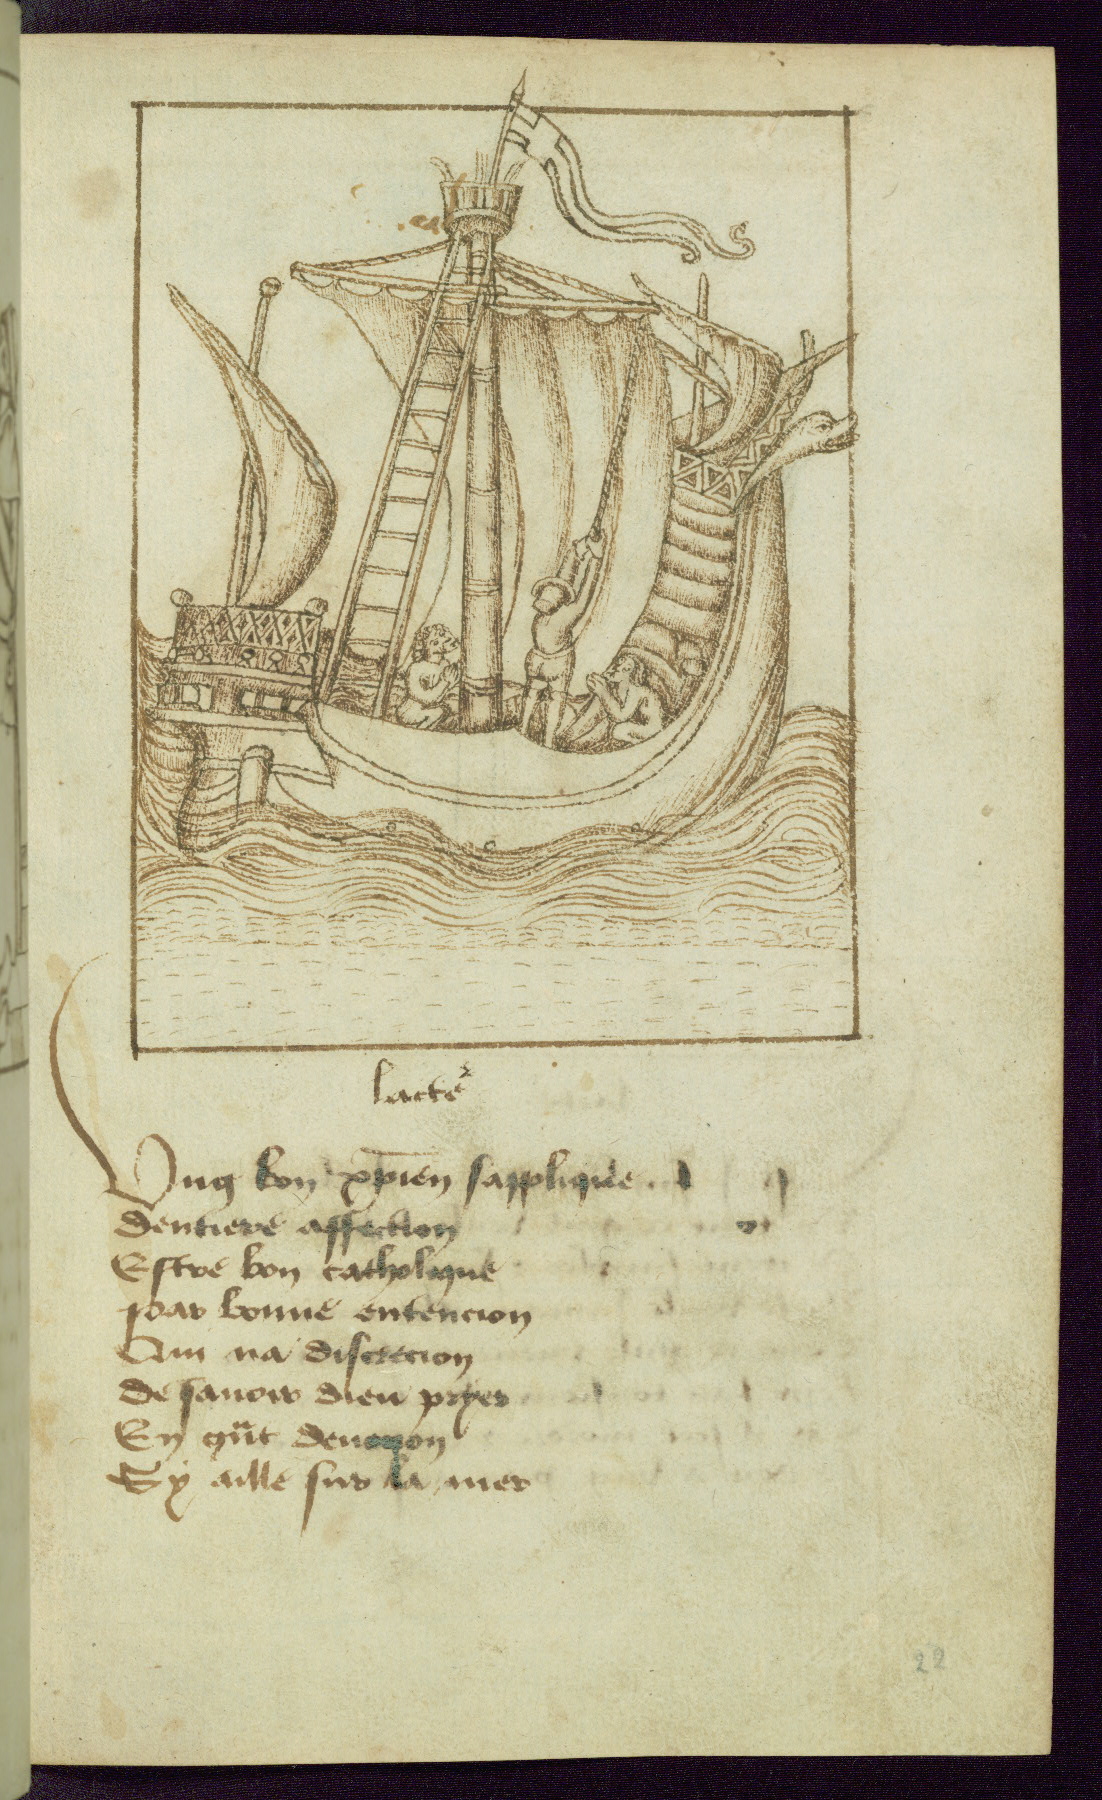 lacteur
Ung bon xpien sapplique
dentiere affection
Estre bon catholique
par bonne entencion
Qui na discrecion
de sauoir dieu pryer
En grāt deuocion
Sy aille sur la mer
22